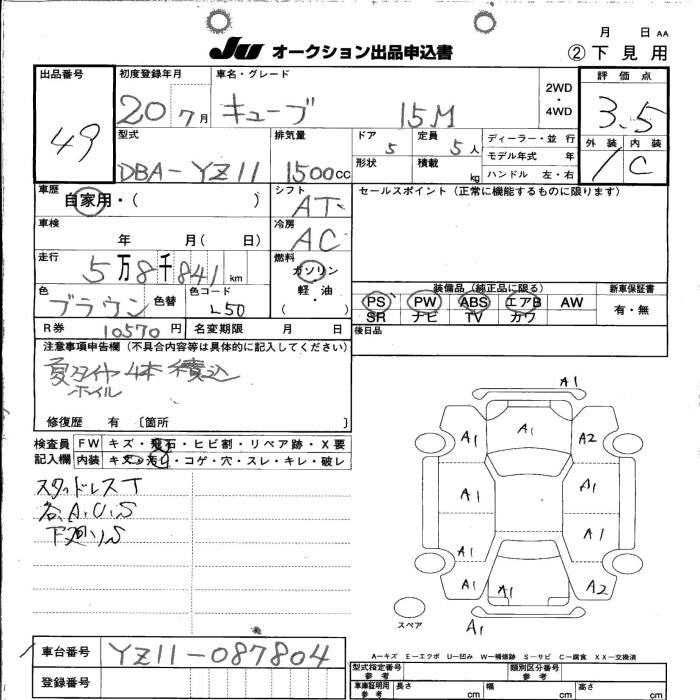 月 日 AA
JU オークション出品申込書 ②下見用
出品番号 初度登録年月 車名・グレード 2WD・4WD 評価点
49 20 7月 キューブ 15M 3.5
型式 排気量 ドア 定員 ディーラー・並行 外装 内装
DBA-YZ11 1500cc 5 5人 モデル年式 年 C
形状 積載 kg ハンドル 左・右
車歴 自家用・( ) シフト AT セールスポイント(正常に機能するものに限ります)
車検 年 月( 日) 冷房 AC
走行 5万8千841km 燃料 ガソリン・軽油 ( )
色 ブラウン 色替 色コード L50
装備品(純正品に限る) 新車保証書
PS PW ABS エアB AW 有・無
SR ナビ TV カワ
R券 10570円 名変期限 月 日 後日品
注意事項申告欄(不具合内容等は具体的に記入してください)
夏タイヤ 4本 積込
ホイル
修復歴 有 〔箇所 〕
検査員 FW キズ・飛石・ヒビ割・リペア跡・X要
記入欄 内装 キズ・汚レ・コゲ・穴・スレ・キレ・破レ
スタッドレスT
各A.U.S
下廻りS
A1
A1 A1 A2
A1 A1
A1 A1
A1 A1 A2
A1
スペア
A-キズ E-エクボ U-凹み W-補修跡 S-サビ C-腐食 XX-交換済
車台番号 YZ11-087804
登録番号
型式指定番号 参考 類別区分番号 参考
車庫証明用 参考 長さ cm 幅 cm 高さ cm